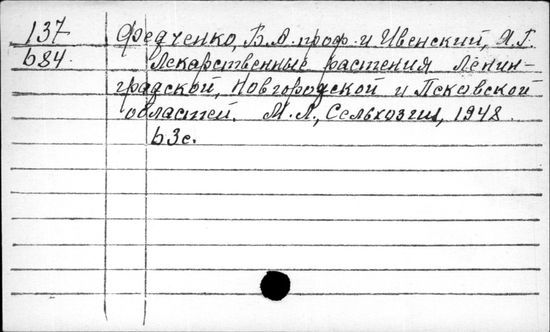 137 Федченко, Б.А. проф. и Ивенский, Я.Г.
684. Лекарственные растения Ленин-
градской, Новгородской и Псковской
областей. М.Л., Сельхозгиз, 1948.
63с.